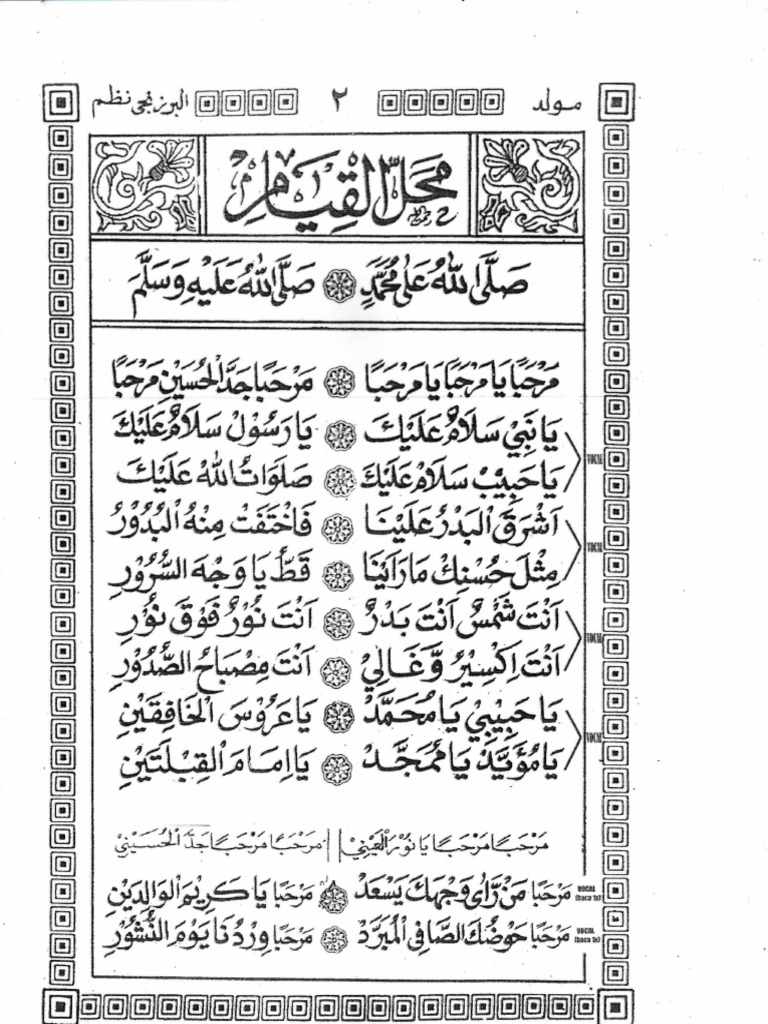 مولد ٢ البرزنجي نظم
مَحَلُّ الْقِيَامِ
صَلَّى اللهُ عَلَى مُحَمَّدٍ صَلَّى اللهُ عَلَيْهِ وَسَلَّمَ
مَرْحَبًا يَا مَرْحَبًا يَا مَرْحَبًا مَرْحَبًا جَدَّ الْحُسَيْنِ مَرْحَبًا
يَا نَبِيْ سَلَامٌ عَلَيْكَ يَا رَسُوْلْ سَلَامٌ عَلَيْكَ
يَا حَبِيْبْ سَلَامٌ عَلَيْكَ صَلَوَاتُ اللهْ عَلَيْكَ
اَشْرَقَ الْبَدْرُ عَلَيْنَا فَاخْتَفَتْ مِنْهُ الْبُدُوْرُ
مِثْلَ حُسْنِكْ مَا رَاَيْنَا قَطُّ يَا وَجْهَ السُّرُوْرِ
اَنْتَ شَمْسٌ اَنْتَ بَدْرٌ اَنْتَ نُوْرٌ فَوْقَ نُوْرِ
اَنْتَ اِكْسِيْرٌ وَّغَالِيْ اَنْتَ مِصْبَاحُ الصُّدُوْرِ
يَا حَبِيْبِيْ يَا مُحَمَّدْ يَا عَرُوْسَ الْخَافِقَيْنِ
يَا مُؤَيَّدْ يَا مُمَجَّدْ يَا اِمَامَ الْقِبْلَتَيْنِ
مَرْحَبًا مَرْحَبًا يَا نُوْرَ الْعَيْنِيْ مَرْحَبًا مَرْحَبًا جَدَّ الْحُسَيْنِيْ
VOCAL (baca tx) مَرْحَبًا مَنْ رَّاٰى وَجْهَكَ يَسْعَدْ مَرْحَبًا يَا كَرِيْمَ الْوَالِدَيْنِ
VOCAL (baca tx) مَرْحَبًا حَوْضُكَ الصَّافِى الْمُبَرَّدْ مَرْحَبًا وِرْدُنَا يَوْمَ النُّشُوْرِ